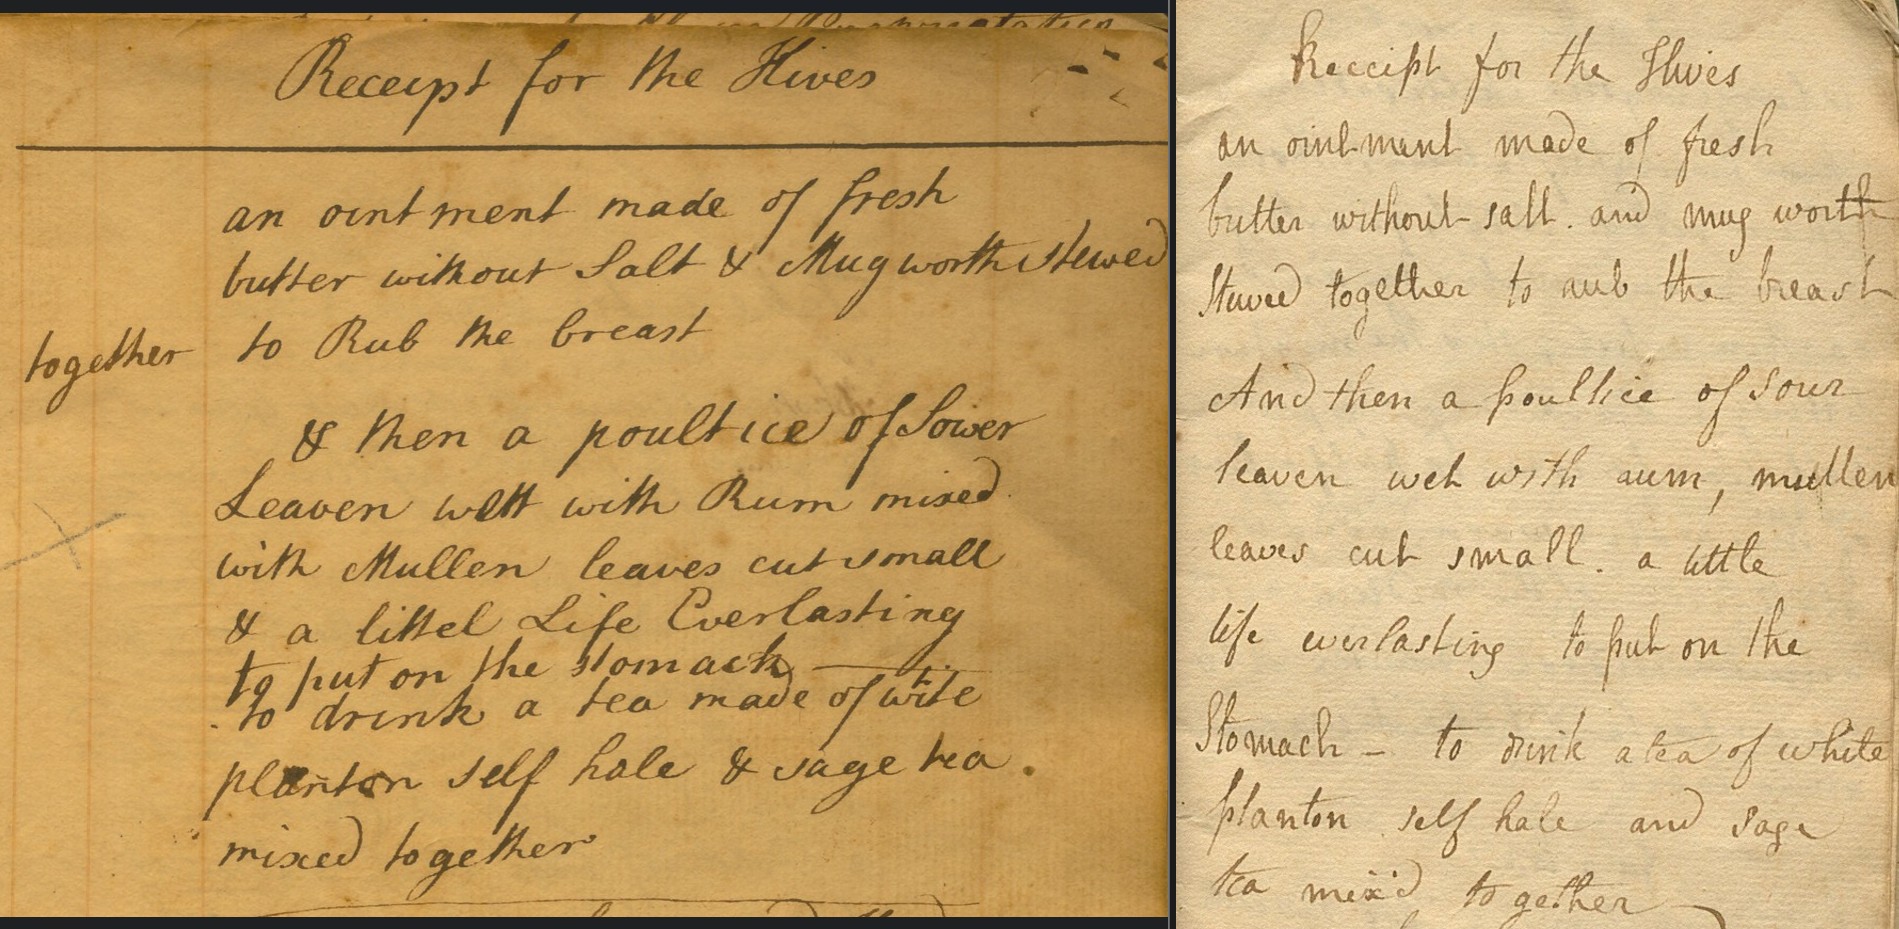 Receipt for the Hives
an ointment made of fresh
butter without Salt & Mugworth stewed
together to Rub the breast
& then a poultice of Sower
Leaven wett with Rum mixed
with Mullen leaves cut small
& a littel Life Everlasting
to put on the stomach
to drink a tea made of wite
planton self hale & sage tea.
mixed together
Receipt for the Hives
an ointment made of fresh
butter without salt. and mug worth
stewed together to rub the breast
And then a poultice of sour
leaven wet with rum, mullen
leaves cut small. a little
life everlasting to put on the
Stomach – to drink a tea of white
planton self hale and sage
tea mix'd together